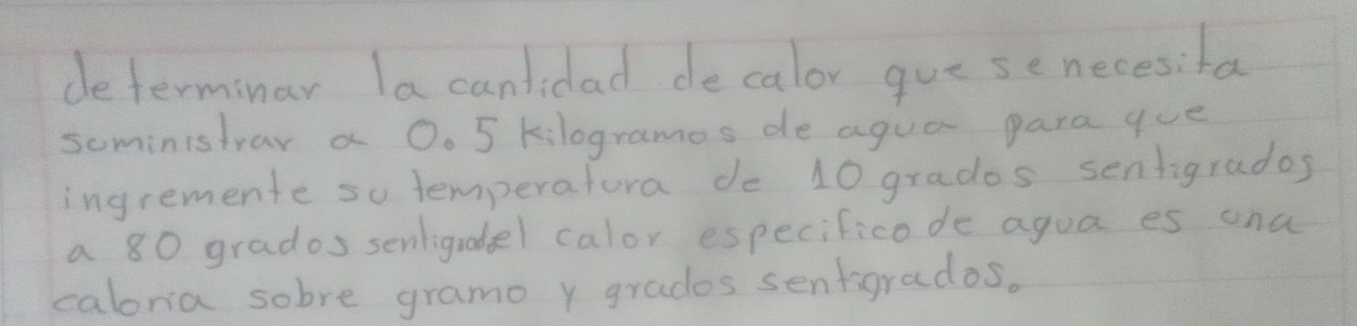 determinar la cantidad de calor que se necesita
suministrar a 0.5 kilogramos de agua para que
ingremente su temperatura de 10 grados sentigrados
a 80 grados sentigradel calor especifico de agua es una
caloria sobre gramo y grados sentigrados.